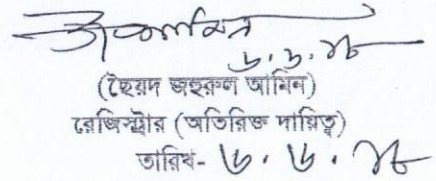 ৬.৬.১৮
(ছৈয়দ জহুরুল আমিন)
রেজিস্ট্রার (অতিরিক্ত দায়িত্ব)
তারিখ- ৬.৬.১৮